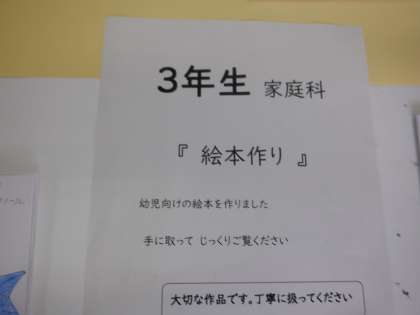 3年生 家庭科
『 絵本作り 』
幼児向けの絵本を作りました
手に取って じっくりご覧ください
大切な作品です。丁寧に扱ってください